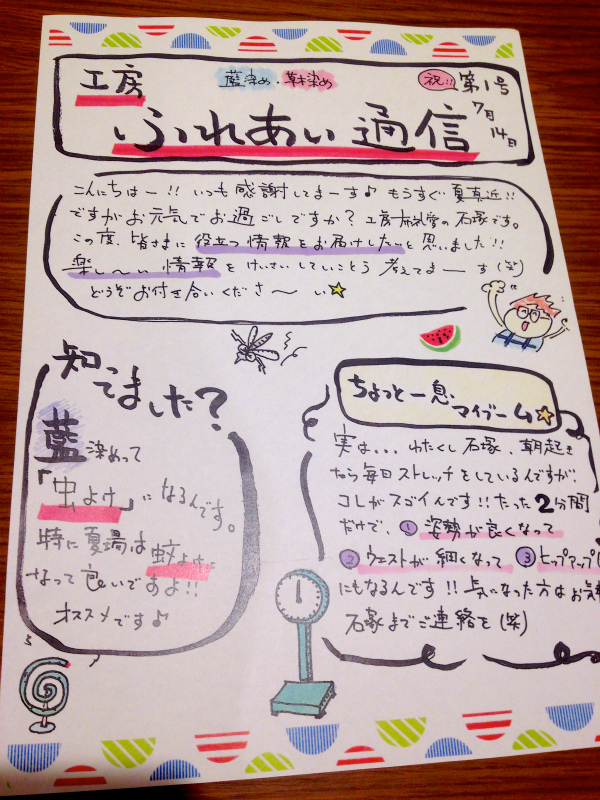 工房
藍染め・草木染め
祝!! 第1号
7月14日
ふれあい通信
こんにちはー!! いつも感謝してまーす♪ もうすぐ夏真近!!
ですがお元気でお過ごしですか? 工房 の石塚です。
この度、皆さまに役立つ情報をお届けしたいと思いました!!
楽し〜い情報をけいさいしていことう考えてまーす(笑)
どうぞお付き合いくださ〜い☆
知ってました?
藍染めって
「虫よけ」になるんです。
特に夏場は蚊よけに
なって良いですよ!!
オススメです♪
ちょっと一息
マイブーム☆
実は...わたくし石塚、朝起き
たら毎日ストレッチをしているんですが、
コレがスゴイんです!! たった2分間
だけで、① 姿勢が良くなって
② ウエストが細くなって ③ ヒップアップ
にもなるんです!! 気になった方はお気
石塚までご連絡を(笑)